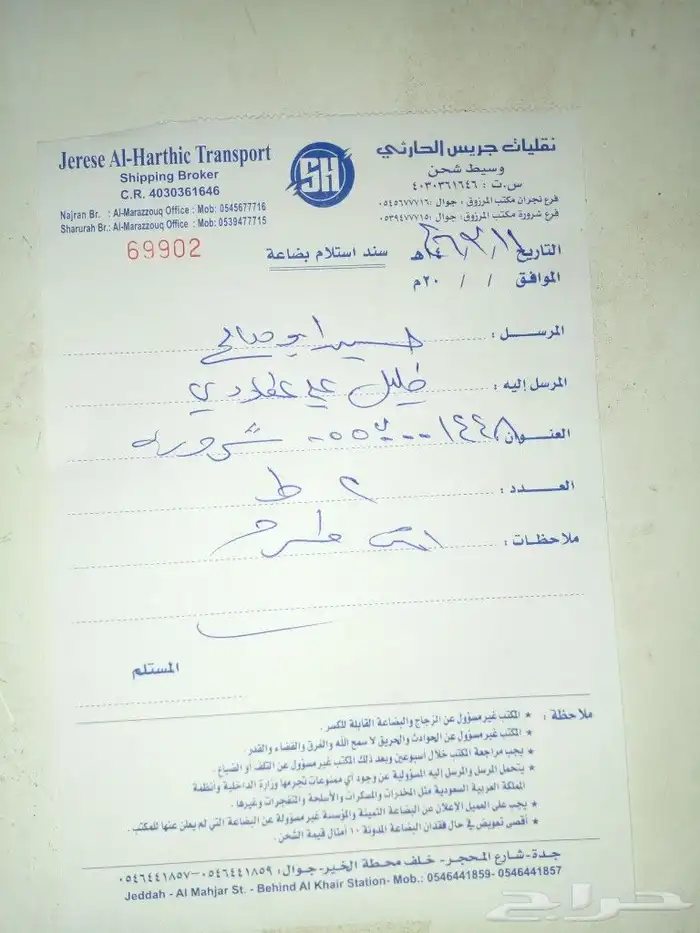 Jerese Al-Harthic Transport
Shipping Broker
C.R. 4030361646
Najran Br. : Al-Marazzouq Office : Mob: 0545677716
Sharurah Br.: Al-Marazzouq Office : Mob: 0539477715
SH
نقليات جريس الحارثي
وسيط شحن
س.ت : ٤٠٣٠٣٦١٦٤٦
فرع نجران مكتب المرزوق : جوال :٠٥٤٥٦٧٧٧١٦
فرع شرورة مكتب المرزوق: جوال :٠٥٣٩٤٧٧٧١٥
69902
سند استلام بضاعة
التاريخ ١١ / ٣ / ١٤٤٦هـ
الموافق / / ٢٠م
المرسل : حسين ابو صالح
المرسل إليه : خليل علي
العنوان : شروره
العدد : ٢ ط
ملاحظات :
المستلم
ملاحظة : * المكتب غير مسؤول عن الزجاج والبضاعة القابلة للكسر .
* المكتب غير مسؤول عن الحوادث والحريق لا سمح الله والغرق والقضاء والقدر .
* يجب مراجعة المكتب خلال أسبوعين وبعد ذلك المكتب غير مسؤول عن التلف أو الضياع .
* يتحمل المرسل والمرسل إليه المسؤولية عن وجود أي ممنوعات تجرمها وزارة الداخلية وأنظمة
المملكة العربية السعودية مثل المخدرات والمسكرات والأسلحة والمتفجرات وغيرها .
* يجب على العميل الإعلان عن البضاعة الثمينة والمؤسسة غير مسؤولة عن البضاعة التي لم يعلن عنها للمكتب .
* أقصى تعويض في حال فقدان البضاعة المدونة ١٠ أمثال قيمة الشحن .
جدة-شارع المحجر- خلف محطة الخير-جوال: ٠٥٤٦٤٤١٨٥٩-٠٥٤٦٤٤١٨٥٧
Jeddah - Al Mahjar St. - Behind Al Khair Station- Mob.: 0546441859- 0546441857
حراج